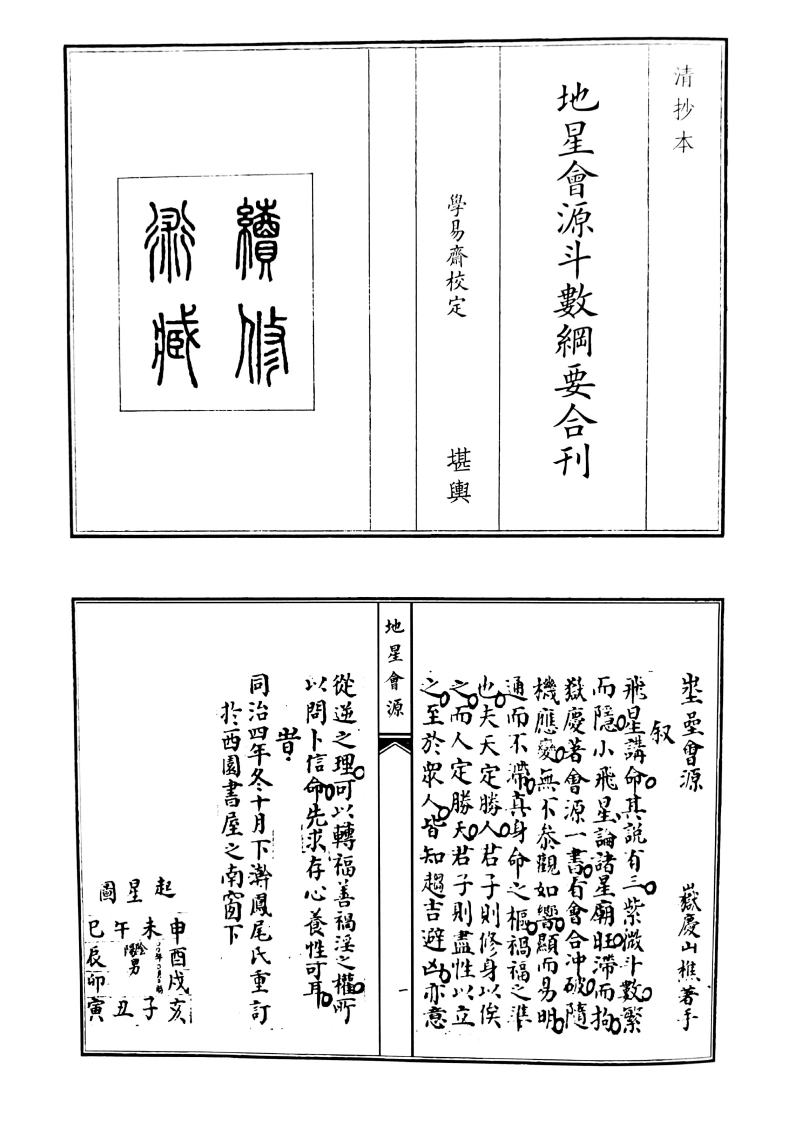 清抄本
地星會源斗數綱要合刊
學易齋校定 堪輿
續修
術藏
地星會源
一
壐曐會源 嶽慶山樵著手
叙
飛星講命其説有三紫微斗數繁
而隱小飛星論諸星廟旺滯而拘
嶽慶著會源一書有會合沖破隨
機應變無不叅觀如響顯而易明
通而不滯真身命之樞禍福之準
也夫天定勝人君子則修身以俟
之而人定勝天君子則盡性以立
之至於衆人皆知趨吉避凶亦意
從逆之理可以轉福善禍淫之權所
以問卜信命先求存心養性可耳
旹
同治四年冬十月下澣鳳尾氏重訂
於西園書屋之南窗下
起星圖
申酉戌亥
未 子
午 陰陽男 丑
巳辰卯寅